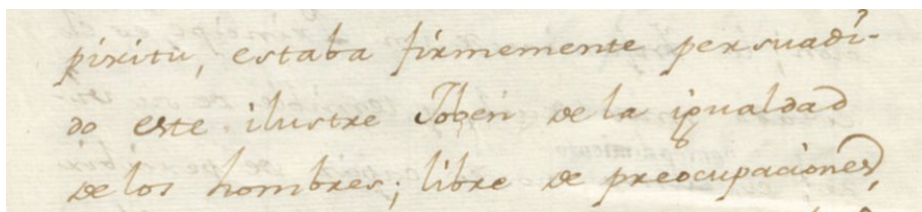 piritu, estaba firmemente persuadi-
do este ilustre Joben de la igualdad
de los hombres; libre de preocupaciones